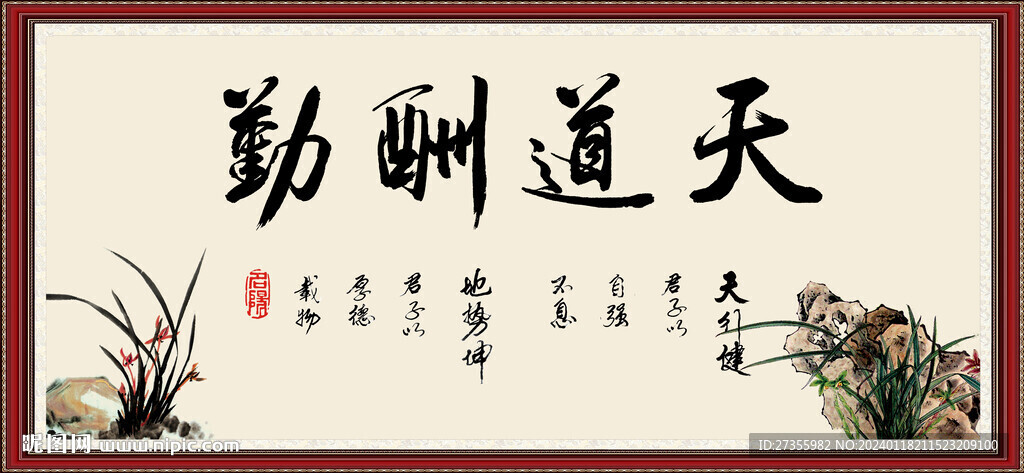 天道酬勤
天行健
君子以
自强
不息
地势坤
君子以
厚德
载物
昵图网 www.nipic.com
ID:27355982 NO:20240118211523209100